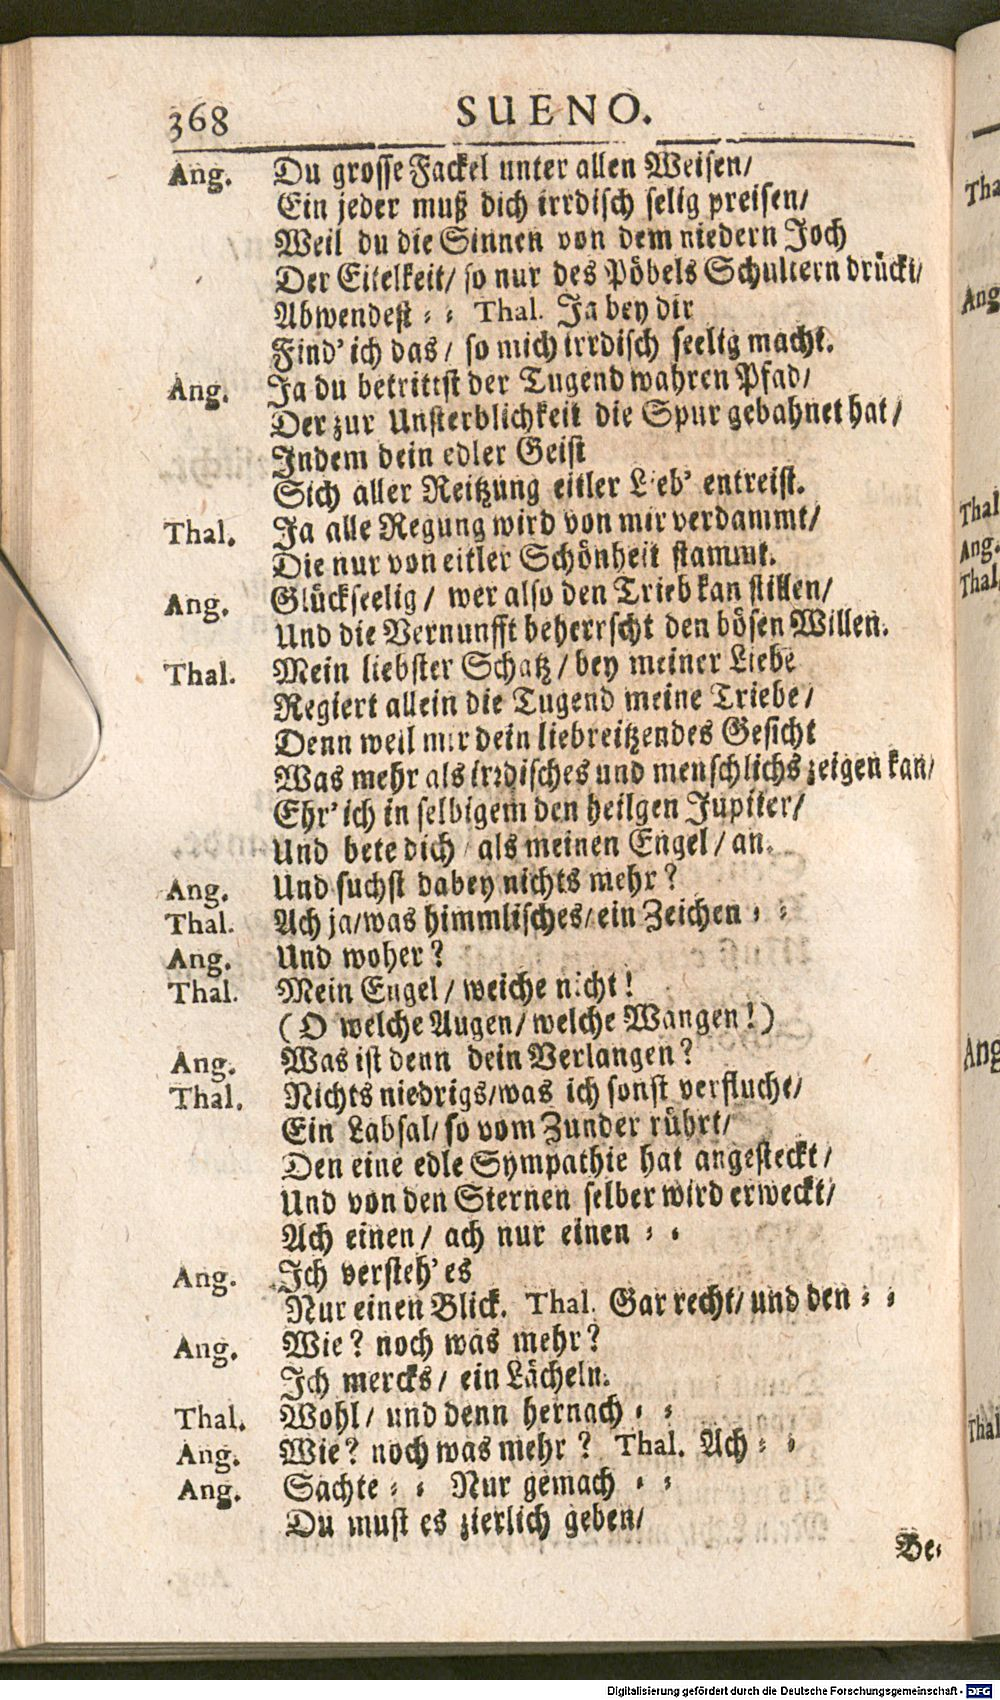 368 SUENO.
Ang. Du grosse Fackel unter allen Weisen/
Ein jeder muß dich irrdisch selig preisen/
Weil du die Sinnen von dem niedern Joch
Der Eitelkeit/ so nur des Pöbels Schultern drückt/
Abwendest ⸗ ⸗ Thal. Ja bey dir
Find' ich das/ so mich irrdisch seelig macht.
Ang. Ja du betrittst der Tugend wahren Pfad/
Der zur Unsterblichkeit die Spur gebahnet hat/
Indem dein edler Geist
Sich aller Reitzung eitler Lieb' entreist.
Thal. Ja alle Regung wird von mir verdammt/
Die nur von eitler Schönheit stammt.
Ang. Glückseelig/ wer also den Trieb kan stillen/
Und die Vernunfft beherrscht den bösen Willen.
Thal. Mein liebster Schatz/ bey meiner Liebe
Regiert allein die Tugend meine Triebe/
Denn weil mir dein liebreitzendes Gesicht
Was mehr als irrdisches und menschlichs zeigen kan/
Ehr' ich in selbigem den heilgen Jupiter/
Und bete dich/ als meinen Engel/ an.
Ang. Und suchst dabey nichts mehr?
Thal. Ach ja/ was himmlisches/ ein Zeichen ⸗ ⸗
Ang. Und woher?
Thal. Mein Engel/ weiche nicht!
(O welche Augen/ welche Wangen!)
Ang. Was ist denn dein Verlangen?
Thal. Nichts niedrigs/ was ich sonst verflucht/
Ein Labsal/ so vom Zunder rührt/
Den eine edle Sympathie hat angesteckt/
Und von den Sternen selber wird erweckt/
Ach einen/ ach nur einen ⸗ ⸗
Ang. Ich versteh' es
Nur einen Blick. Thal. Gar recht/ und den ⸗ ⸗
Ang. Wie? noch was mehr?
Ich mercks/ ein Lächeln.
Thal. Wohl/ und denn hernach ⸗ ⸗
Ang. Wie? noch was mehr? Thal. Ach ⸗ ⸗
Ang. Sachte ⸗ ⸗ Nur gemach ⸗ ⸗
Du must es zierlich geben/
Be⸗
Tha
Ang
Thal
Ang.
Thal.
Ang
Thal
Digitalisierung gefördert durch die Deutsche Forschungsgemeinschaft - DFG